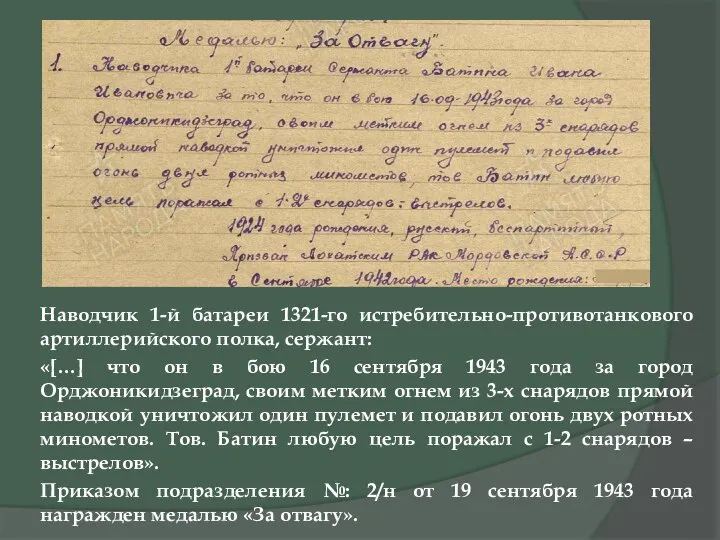 Медалью: „За Отвагу".
1. Наводчика 1й батареи Сержанта Батина Ивана
Ивановича за то, что он в бою 16.09.1943 года за город
Орджоникидзеград, своим метким огнем из 3х снарядов
прямой наводкой уничтожил один пулемет и подавил
огонь двух ротных минометов, тов Батин любую
цель поражал с 1-2х снарядов-выстрелов.
1924 года рождения, русский, беспартийный,
Призван РВК Мордовской А.С.С.Р.
в Сентябре 1942 года. Место рождения:
ПАМЯТЬ
НАРОДА
Наводчик 1-й батареи 1321-го истребительно-противотанкового
артиллерийского полка, сержант:
«[…] что он в бою 16 сентября 1943 года за город
Орджоникидзеград, своим метким огнем из 3-х снарядов прямой
наводкой уничтожил один пулемет и подавил огонь двух ротных
минометов. Тов. Батин любую цель поражал с 1-2 снарядов –
выстрелов».
Приказом подразделения №: 2/н от 19 сентября 1943 года
награжден медалью «За отвагу».